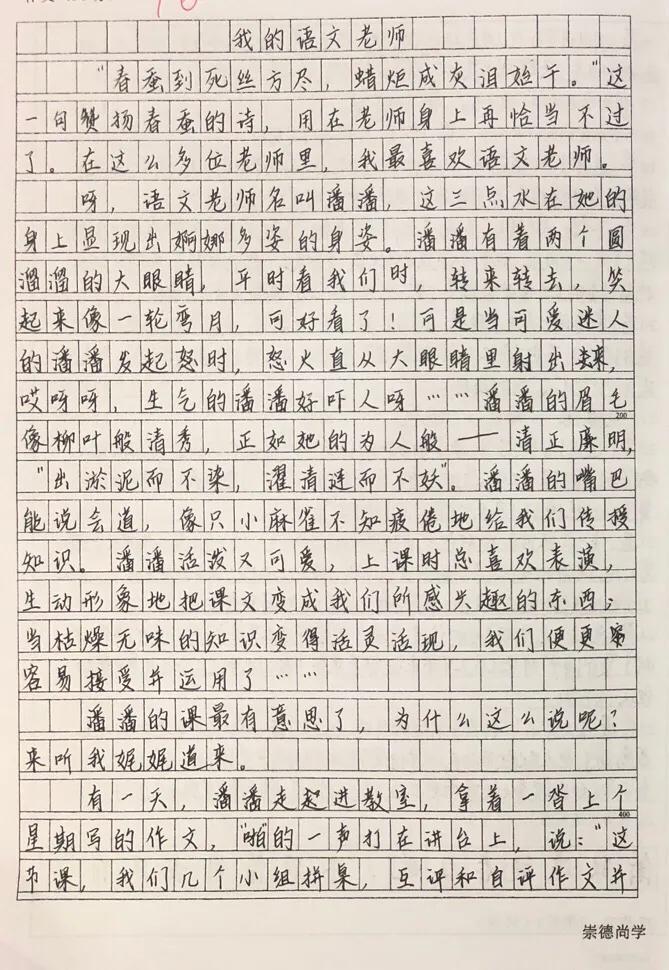 我的语文老师
“春蚕到死丝方尽，蜡炬成灰泪始干。”这
一句赞扬春蚕的诗，用在老师身上再恰当不过
了。在这么多位老师里，我最喜欢语文老师。
呀，语文老师名叫潘潘，这三点水在她的
身上显现出婀娜多姿的身姿。潘潘有着两个圆
溜溜的大眼睛，平时看我们时，转来转去，笑
起来像一轮弯月，可好看了！可是当可爱迷人
的潘潘发起怒时，怒火直从大眼睛里射出来，
哎呀呀，生气的潘潘好吓人呀……潘潘的眉毛
200
像柳叶般清秀，正如她的为人般——清正廉明，
“出淤泥而不染，濯清涟而不妖”。潘潘的嘴巴
能说会道，像只小麻雀不知疲倦地给我们传授
知识。潘潘活泼又可爱，上课时总喜欢表演，
生动形象地把课文变成我们所感兴趣的东西；
当枯燥无味的知识变得活灵活现，我们便更
容易接受并运用了……
潘潘的课最有意思了，为什么这么说呢？
来听我娓娓道来。
有一天，潘潘走起进教室，拿着一沓上个
400
星期写的作文，“啪”的一声打在讲台上，说：“这
节课，我们几个小组拼桌，互评和自评作文并
崇德尚学